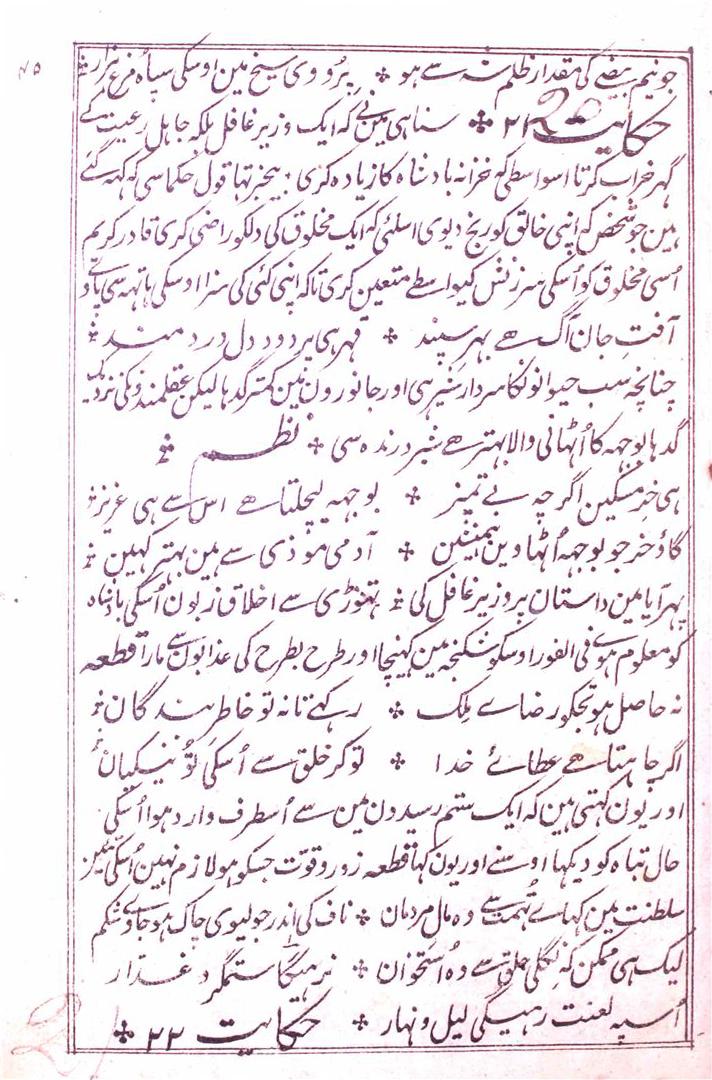 ۷۵
جو نیم بیضے کی مقدار ظلم شہ سے ہو ٭ پرووی سیخ مین اوسکی سپاہ مرغ ہزار
حکایت ۲۱ ٭ سنا ہی مین نے کہ ایک وزیر غافل بلکہ جاہل رعیت کے
گہر خراب کرتا اسواسطی کہ خزانہ بادشاہ کا زیادہ کری ٭ بیخبر تہا قول حکما سی کہ کہہ گئے
ہین جو شخص کہ اپنی خالق کو رنج دیوی اسلئی کہ ایک مخلوق کی دلکو راضی کری قادر کریم
اُسی مخلوق کو اُسکی سرزنش کیواسطے متعین کری تاکہ اپنی کئی کی سزا اوسکی ہاتہہ سی پاوے
آفتِ جان آگ ہے بہرِ سپند ٭ قہر ہی پر دود دل دردمند
چنانچہ سب حیوانونکا سردار شیر ہی اور جانورون مین کمتر گدہا لیکن عقلمندونکی نزدیک
گدہا بوجہہ کا اُٹہانی والا بہتر ہے شیر درندہ سی ٭ نظم
ہی خر مسکین اگرچہ بے تمیز ٭ بوجہہ لیچلتا ہے اس سے ہی عزیز
گاؤ خر جو بوجہہ اُٹہاوین ٭ آدمی موذی سے ہین بہتر کہین
پہر آیا مین داستان پر وزیر غافل کی ٭ تہوڑی سے اخلاق زبون اُسکی بادشاہ
کو معلوم ہوے فی الفور اوسکو شکنجہ مین کہینچا اور طرح بطرح کی عذابون سے مارا قطعہ
نہ حاصل ہو تجکو رضاے ملک ٭ رکہے تا نہ تو خاطرِ بندگان
اگر چاہتا ہے عطائے خدا ٭ تو کر خلق سے اُسکی تو نیکیان
اور یون کہتی ہین کہ ایک ستم رسیدون مین سے اُسطرف وارد ہوا اُسکی
حال تباہ کو دیکہا اوسنے اور یون کہا قطعہ زور و قوت جسکو ہو لازم نہین اُسکی تئین
سلطنت مین کہاے تہمت سے وہ مال مردمان ٭ ناف کی اندر جو لیوی چاک ہو جاوے شکم
لیک ہی ممکن کہ نگلی حلق سے وہ اُستخوان ٭ نہ رہیگا ستمگر غدار
اُسپہ لعنت رہیگی لیل و نہار ٭ حکایت ۲۲ ٭